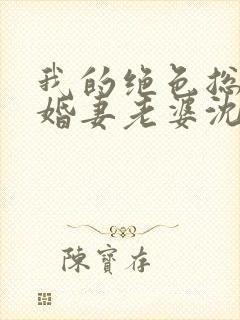 我的绝色总
婚妻老婆沈
陈寶存